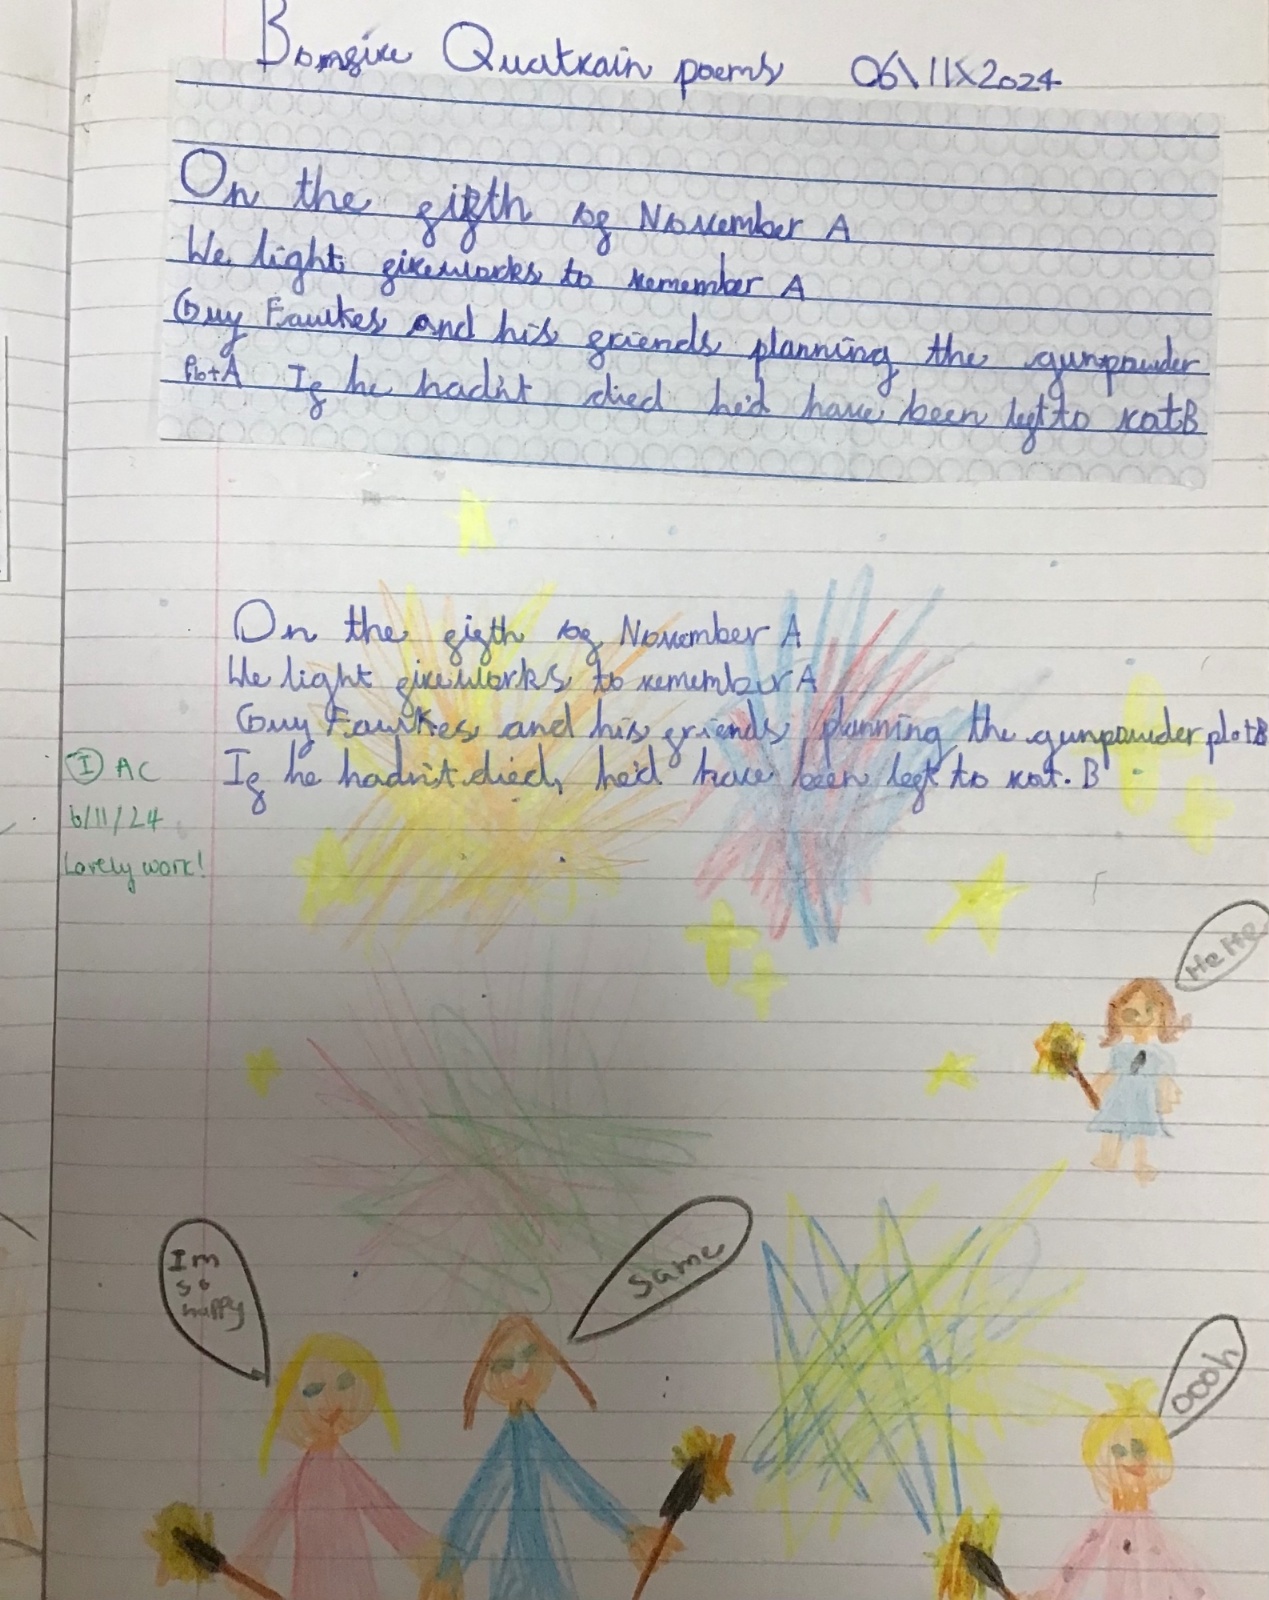 Bonfire Quatrain poems 06\11\2024
On the fifth of November A
We light fireworks to remember A
Guy Fawkes and his friends planning the gunpowder
plot A If he hadn't died he'd have been left to rot B
On the fifth of November A
We light fireworks to remember A
Guy Fawkes and his friends planning the gunpowder plot B
If he hadn't died, he'd have been left to rot. B
I AC
6/11/24
Lovely work!
HeHe
Im
so
happy
Same
oooh